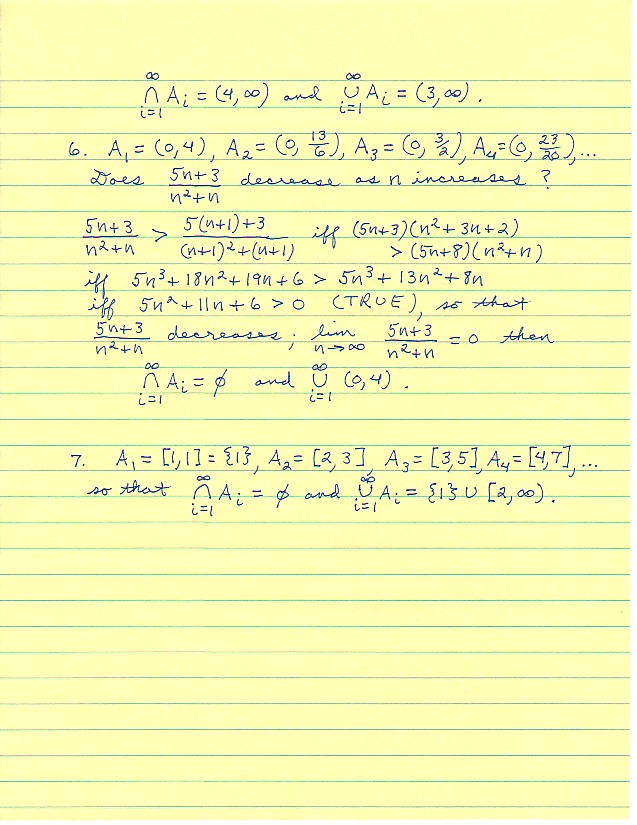 ∞⋂i=1 Aᵢ = (4, ∞) and ∞⋃i=1 Aᵢ = (3, ∞).
6. A₁ = (0, 4), A₂ = (0, 13/6), A₃ = (0, 3/2), A₄ = (0, 23/20), ...
Does (5n+3)/(n²+n) decrease as n increases?
(5n+3)/(n²+n) > (5(n+1)+3)/((n+1)²+(n+1)) iff (5n+3)(n²+3n+2)
> (5n+8)(n²+n)
iff 5n³+18n²+19n+6 > 5n³+13n²+8n
iff 5n²+11n+6 > 0 (TRUE), so that
(5n+3)/(n²+n) decreases; lim n→∞ (5n+3)/(n²+n) = 0 then
∞⋂i=1 Aᵢ = ϕ and ∞⋃i=1 (0, 4).
7. A₁ = [1, 1] = {1}, A₂ = [2, 3], A₃ = [3, 5], A₄ = [4, 7], ...
so that ∞⋂i=1 Aᵢ = ϕ and ∞⋃i=1 Aᵢ = {1} ∪ [2, ∞).